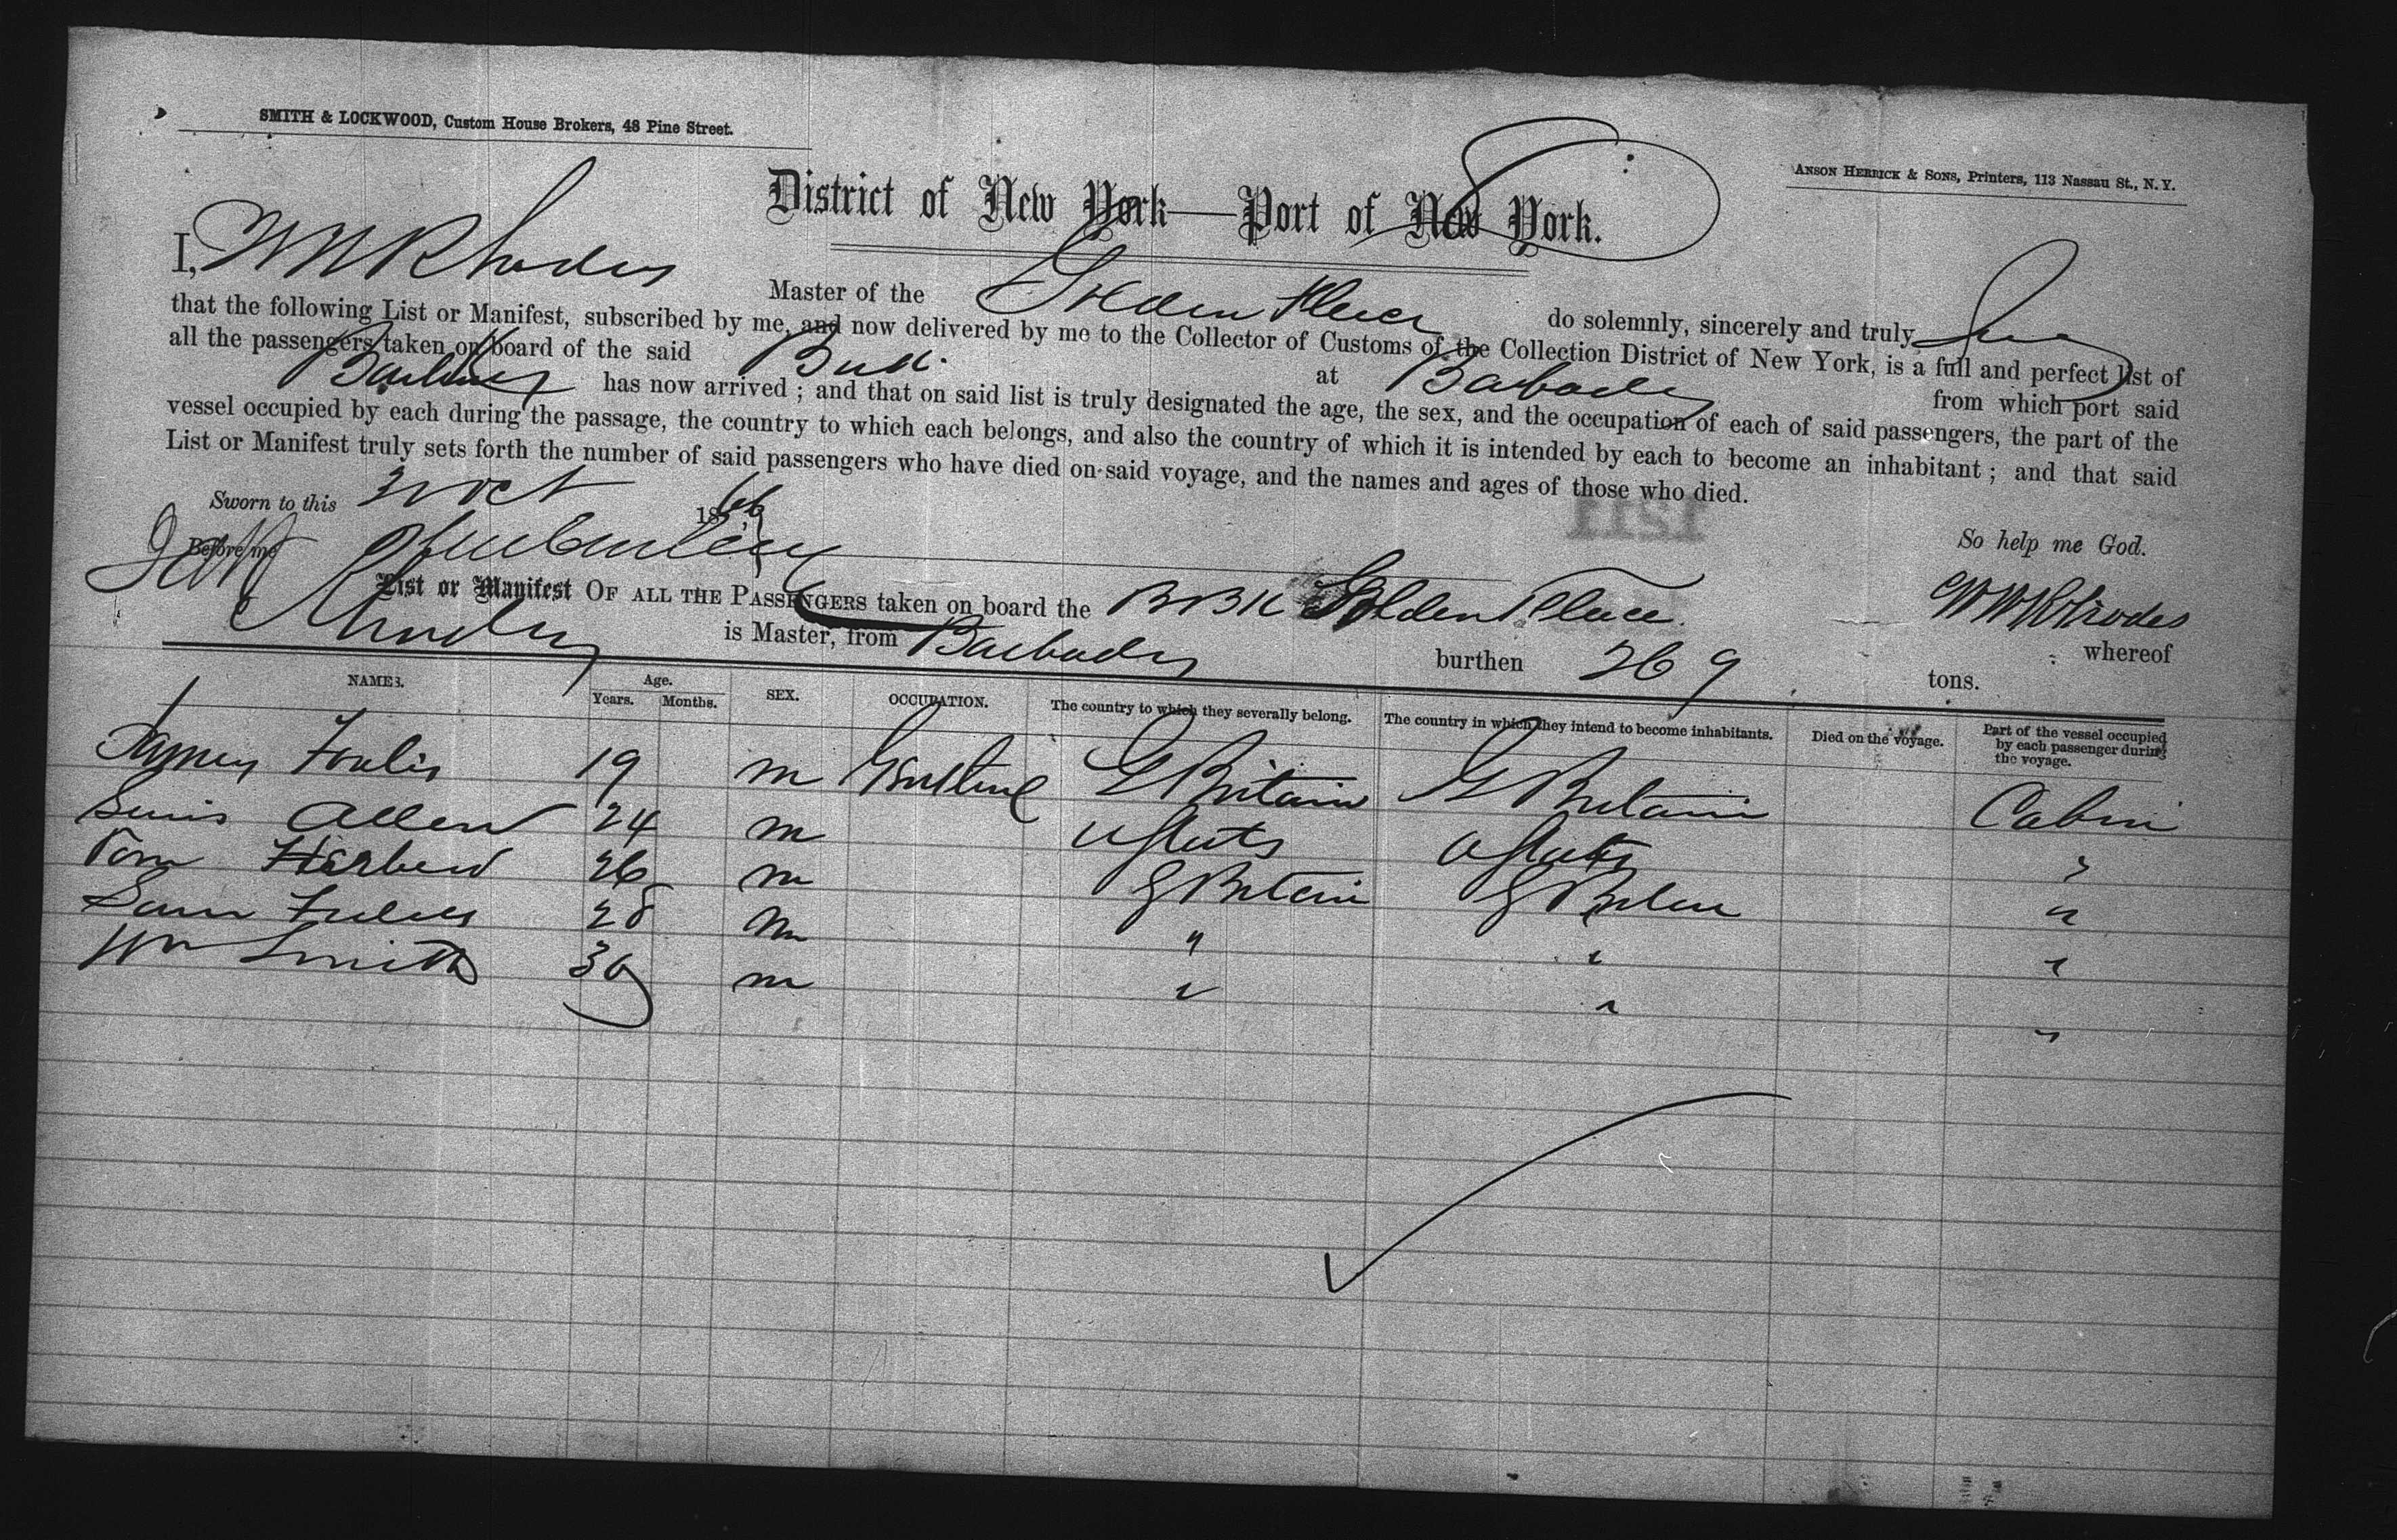 SMITH & LOCKWOOD, Custom House Brokers, 48 Pine Street.
ANSON HERRICK & SONS, Printers, 113 Nassau St., N. Y.
District of New York—Port of New York.
I, W W Rhodes Master of the Golden Fleece do solemnly, sincerely and truly
that the following List or Manifest, subscribed by me, and now delivered by me to the Collector of Customs of the Collection District of New York, is a full and perfect list of
all the passengers taken on board of the said at Barbados from which port said
has now arrived ; and that on said list is truly designated the age, the sex, and the occupation of each of said passengers, the part of the
vessel occupied by each during the passage, the country to which each belongs, and also the country of which it is intended by each to become an inhabitant ; and that said
List or Manifest truly sets forth the number of said passengers who have died on said voyage, and the names and ages of those who died.
Sworn to this Oct 1866 So help me God.
Before me W W Rhodes
List or Manifest OF ALL THE PASSENGERS taken on board the Golden Fleece whereof
Rhodes is Master, from Barbados burthen 269 tons.
NAMES. Age. Years. Months. SEX. OCCUPATION. The country to which they severally belong. The country in which they intend to become inhabitants. Died on the voyage. Part of the vessel occupied by each passenger during the voyage.
James 19 m G Britain G Britain Cabin
Allen 24 m U States U States "
Tom 26 m G Britain G Britain "
Sam 28 m " " "
Wm Smith 30 m " " "